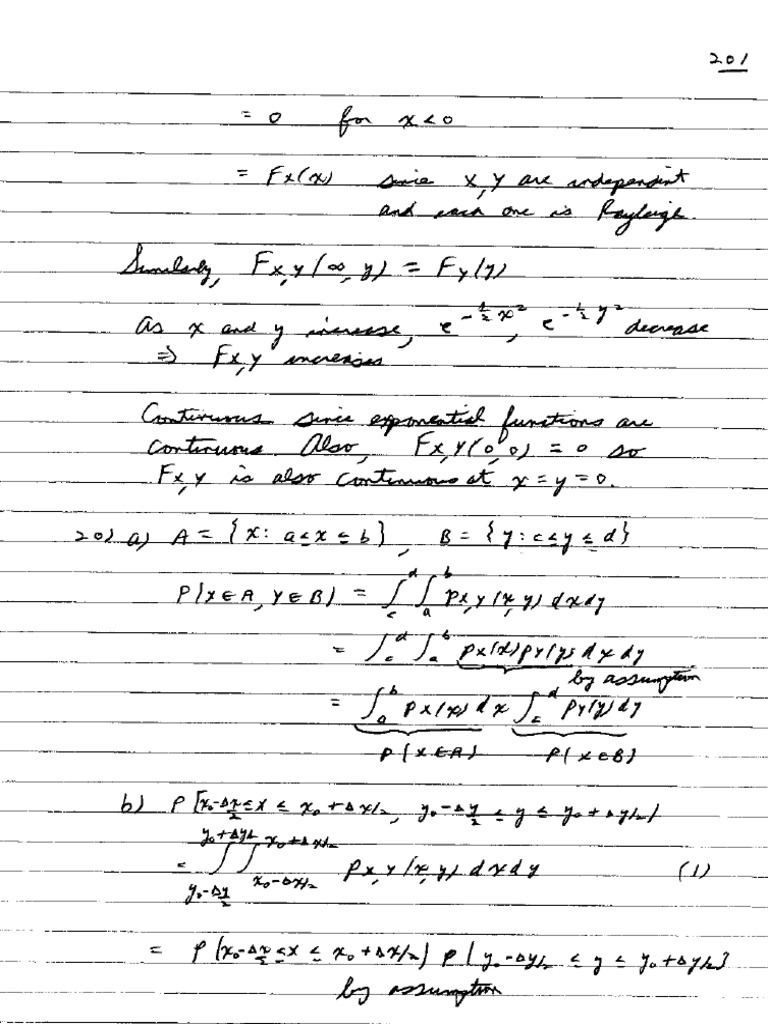 201
= 0 for x < 0
= F_X(x) since X, Y are independent
and each one is Rayleigh.
Similarly, F_{X,Y}(∞, y) = F_Y(y)
As x and y increase, e^{-½x²}, e^{-½y²} decrease
⇒ F_{X,Y} increases
Continuous since exponential functions are
continuous. Also, F_{X,Y}(0,0) = 0 so
F_{X,Y} is also continuous at x = y = 0.
20) a) A = {x: a ≤ x ≤ b}, B = {y: c ≤ y ≤ d}
P(X∈A, Y∈B) = ∫_c^d ∫_a^b p_{X,Y}(x,y) dx dy
= ∫_c^d ∫_a^b p_X(x) p_Y(y) dx dy
by assumption
= ∫_a^b p_X(x) dx ∫_c^d p_Y(y) dy
P(X∈A) P(X∈B)
b) P[x₀-Δx/2 ≤ X ≤ x₀+Δx/2, y₀-Δy/2 ≤ y ≤ y₀+Δy/2)
= ∫_{y₀-Δy/2}^{y₀+Δy/2} ∫_{x₀-Δx/2}^{x₀+Δx/2} p_{X,Y}(x,y) dx dy (1)
= P(x₀-Δx/2 ≤ X ≤ x₀+Δx/2) P[y₀-Δy/2 ≤ y ≤ y₀+Δy/2]
by assumption